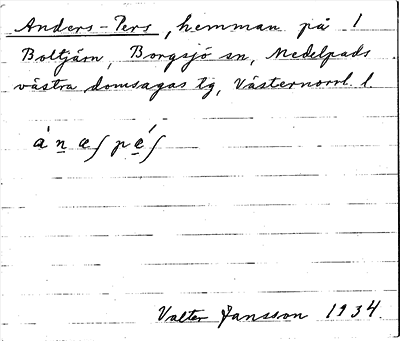 Anders-Pers, hemman på 1
Boltjärn, Borgsjö sn, Medelpads
västra domsagas tg, Västernorrl. l.
ánæʃpéʃ
Valter Jansson 1934.